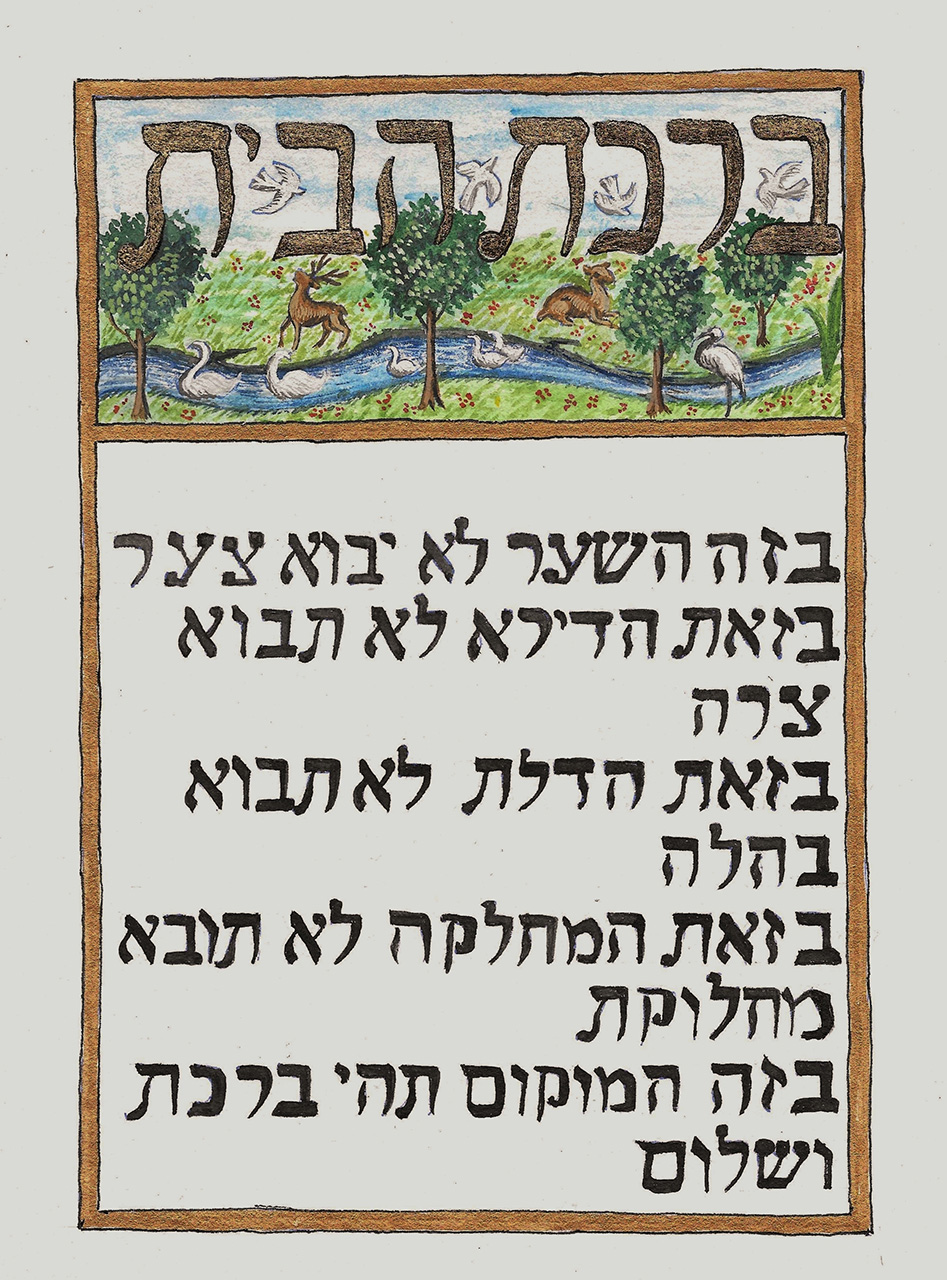 ברכת הבית
בזה השער לא יבוא צער
בזאת הדירא לא תבוא
צרה
בזאת הדלת לא תבוא
בהלה
בזאת המחלקה לא תובא
מחלוקת
בזה המוקום תהי ברכת
ושלום